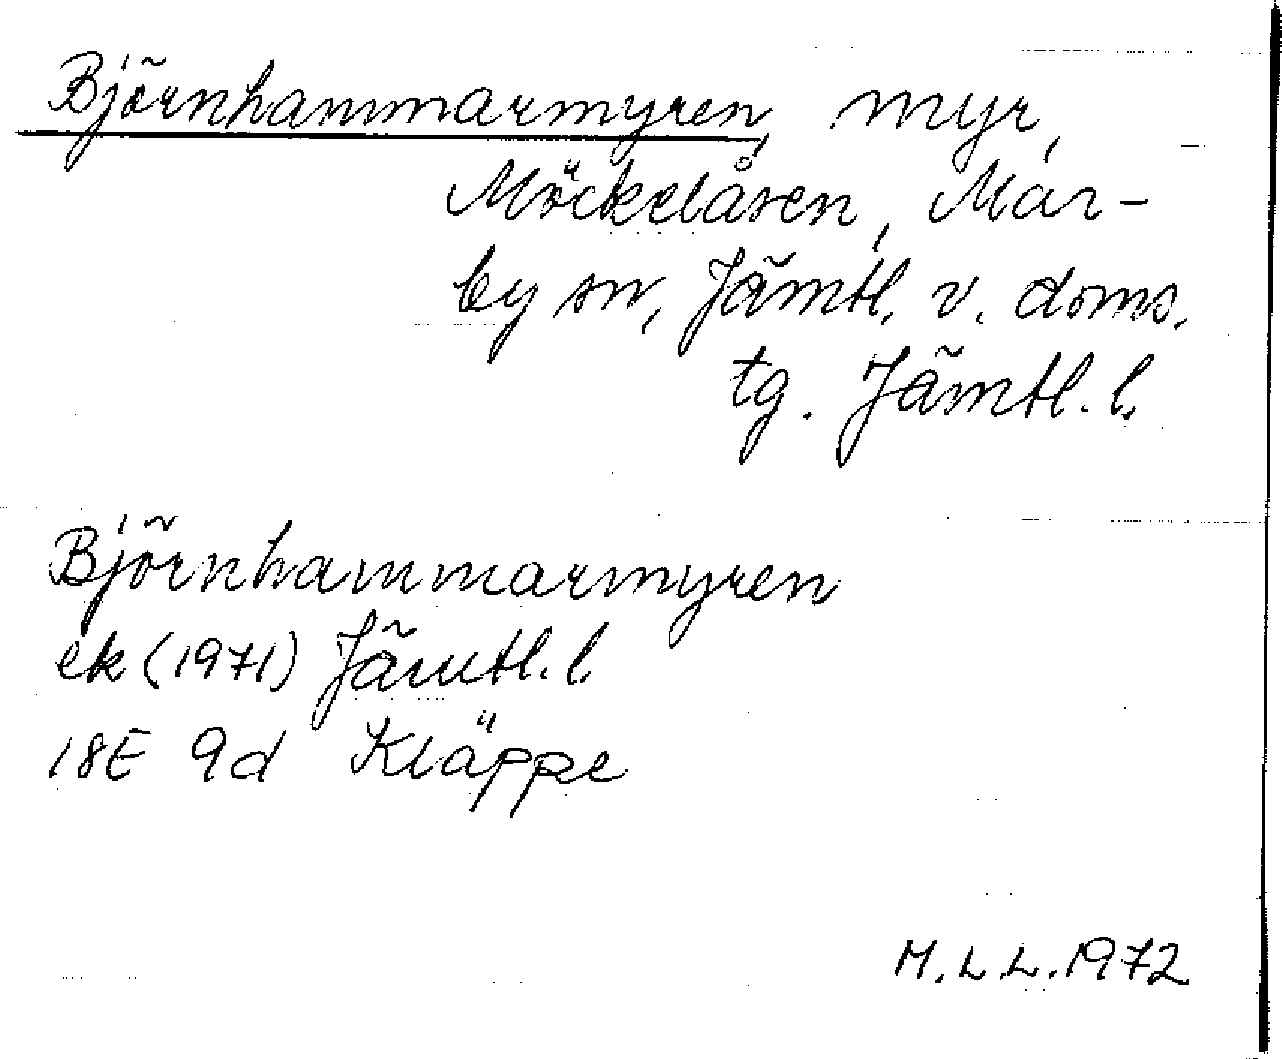 Björnhammarmyren, myr,
Möckelåsen, Mar-
by sn, Jämtl. v. doms.
tg. Jämtl. l.
Björnhammarmyren
ek (1971) Jämtl. l.
18E 9d Kläppe
M.L.L. 1972